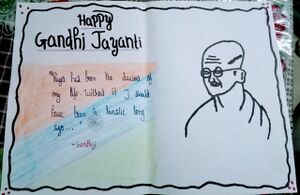 Happy
Gandhi Jayanti
"Prayer has been the saviour of
my life. without it I should
have been a lunatic long
ago..."
- Gandhiji